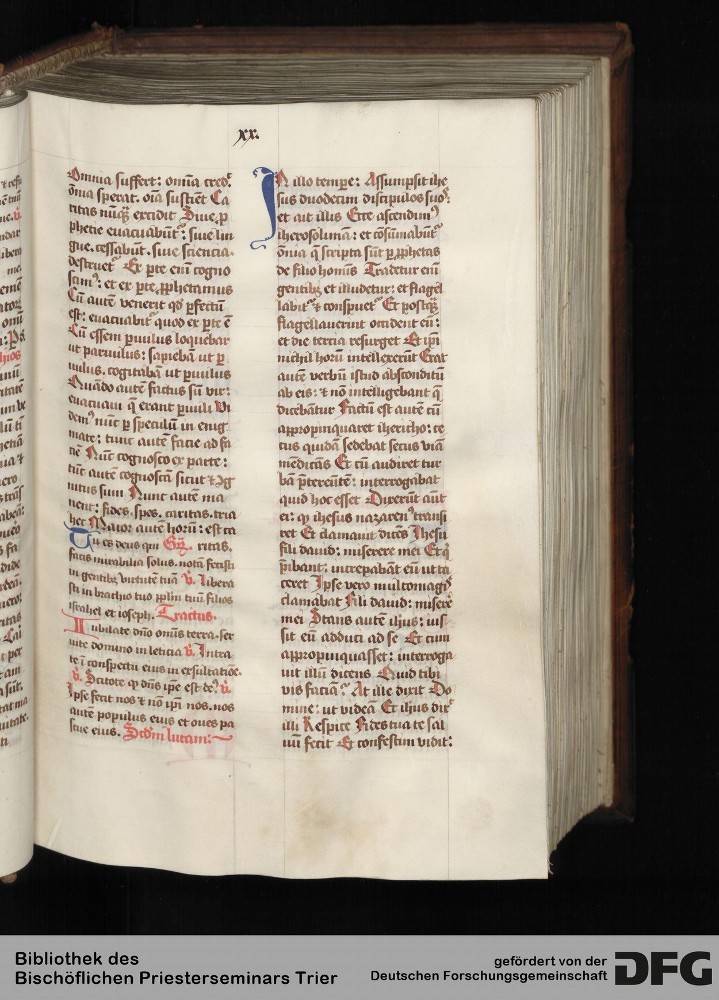 xx.
Omnia suffert: omnia cred.
oīa sperat. oīa sustinet Ca
ritas nūqꝫ excidit Siue ꝓ
phetie euacuabūtᷣ: siue lin
gue. cessabūt. siue sciencia.
destruetᷣ Ex ꝑte enī cogno
scimꝰ: et ex ꝑte ꝓphetamus
Cū autē venerit qd ꝑfectū
est: euacuabitᷣ quod ex ꝑte ē
Cū essem ꝑuulus loquebar
ut paruulus: sapiebā ut ꝑ
uulus. cogitabā ut ꝑuulus
Quādo autē factus sū vir:
euacuaui q̄ erant ꝑuuli Vi
demꝰ nūc ꝑ speculū in enig
mate: tunc autē facie ad fa
ciē Nūc cognosco ex parte:
tūc autē cognoscā sicut ⁊ cog
nitus sum Nunc autē ma
nent: fides. spes. caritas. tria
hec Maior autē horū: est ca
Tu es deus qui Gr̄. ritas.
facis mirabilia solus. notā fecisti
in gentibꝫ virtutē tuā V̄. libera
sti in brachio tuo ppłm tuū filios
israhel et ioseph. Tractus.
Iubilate dn̄o omnis terra. ser
uite domino in leticia V̄. Intra
te ī conspectu eius in exsultatiōe.
V̄. Scitote qꝫ dn̄s ipe est deꝰ V̄.
Ipse fecit nos ⁊ nō ipi nos. nos
autē populus eius et oues pa
scue eius. Scdm̄ lucam:
IN illo tempore: Assumpsit ihe
sus duodecim discipulos suos:
et ait illis Ecce ascendimꝰ
iherosolimā: et cōsūmabūtᷣ
ōmia q̄ scripta sūt ꝑ ꝓphetas
de filio hominis Tradetur enī
gentibꝫ et illudetur: et flagel
labitᷣ ⁊ conspuetᷣ Et postqꝫ
flagellauerint occident eū:
et die tercia resurget Et ipi
nichil horū intellexerūt Erat
autē verbū istud absconditū
ab eis: ⁊ nō intelligebant q̄
dicebātur Factū est autē cū
appropinquaret ihericho: ce
cus quidā sedebat secus viā
mēdicās Et cū audiret tur
bā p̄tereūtē: interrogabat
quid hoc esset Dixerūt aut
ei: qꝫ ihesus nazarenꝰ transi
ret Et clamauit dicēs Ihesu
fili dauid: miserere mei Et q̄
p̄ibant: increpabāt eū ut ta
ceret Ipse vero multomagis
clamabat Fili dauid: miserē
mei Stans autē ihūs: ius
sit eū adduci ad se Et cum
appropinquasset: interroga
uit illū dicens Quid tibi
vis faciā? At ille dixit Do
mine: ut videā Et ihūs dixᷣ
illi Respice Fides tua te sal
uū fecit Et confestim vidit:
Bibliothek des
Bischöflichen Priesterseminars Trier
gefördert von der
Deutschen Forschungsgemeinschaft
DFG